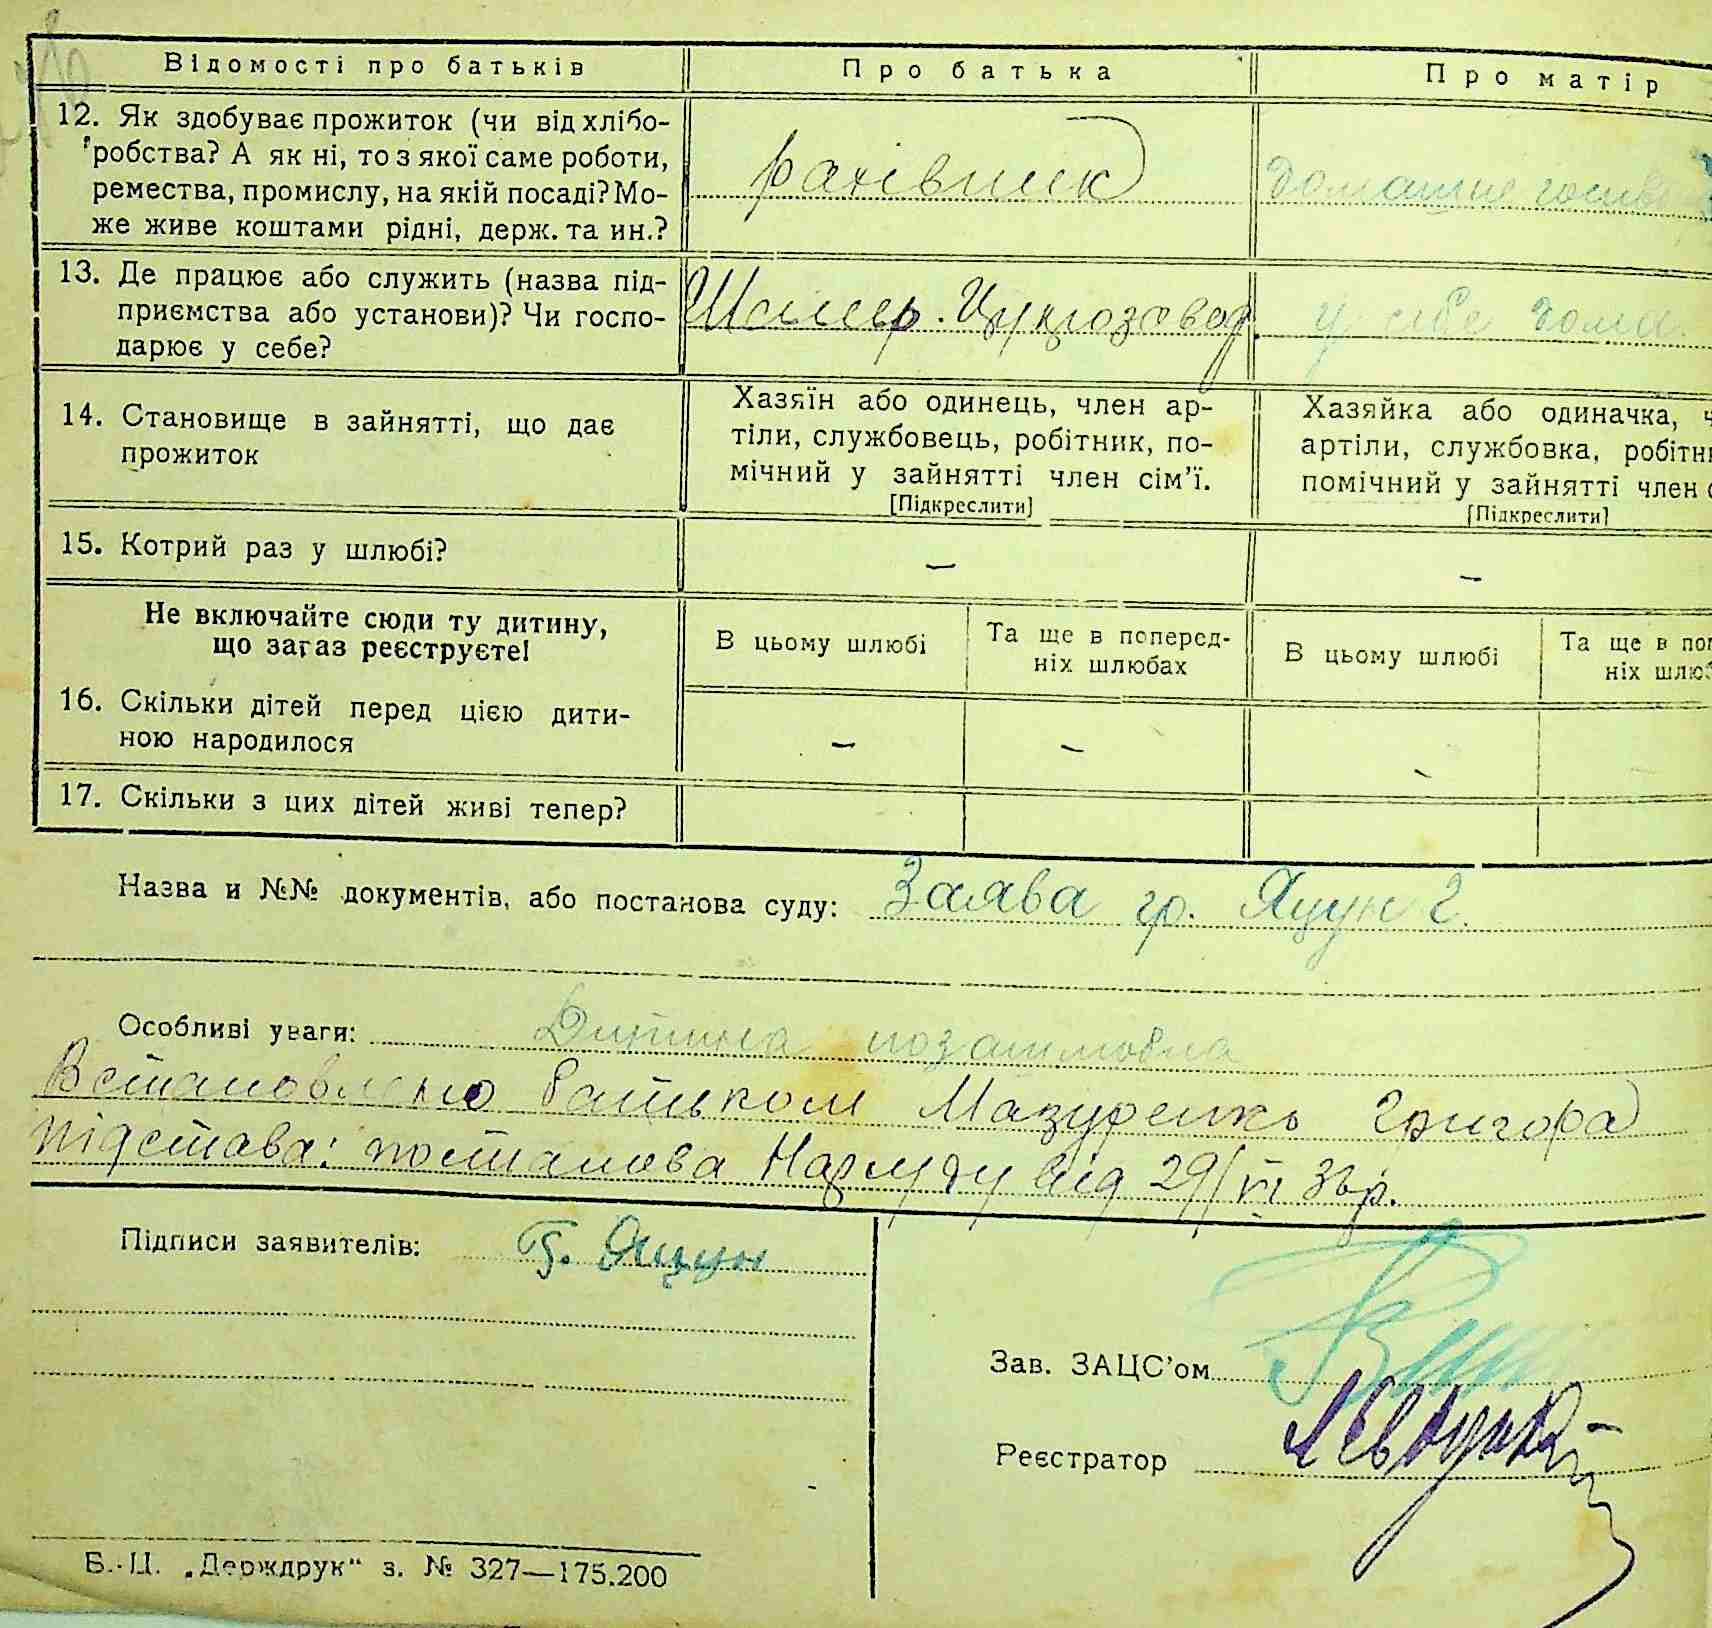 Відомості про батьків
Про батька
Про матір
12. Як здобуває прожиток (чи від хлібо-
робства? А як ні, то з якої саме роботи,
ремества, промислу, на якій посаді? Мо-
же живе коштами рідні, держ. та ин.?
домашнє
13. Де працює або служить (назва під-
приємства або установи)? Чи госпо-
дарює у себе?
Цукрозавод
у себе дома
14. Становище в зайнятті, що дає
прожиток
Хазяїн або одинець, член ар-
тіли, службовець, робітник, по-
мічний у зайнятті член сім'ї.
[Підкреслити]
Хазяйка або одиначка, ч
артіли, службовка, робітн
помічний у зайнятті член с
[Підкреслити]
15. Котрий раз у шлюбі?
–
–
Не включайте сюди ту дитину,
що загаз реєструєте!
В цьому шлюбі
Та ще в поперед-
ніх шлюбах
В цьому шлюбі
Та ще в поп
ніх шлюб
16. Скільки дітей перед цією дити-
ною народилося
–
–
–
–
17. Скільки з цих дітей живі тепер?
Назва и №№ документів, або постанова суду: Заява гр. Яцун Г.
Особливі уваги: Дитина позашлюбна
Встановлено батьком Мазуренко Григора
підстава: постанова Нарсуду від 29/VI 3
Підписи заявителів: Г. Яцун
Зав. ЗАЦС'ом
Реєстратор
Б.-Ц. „Держдрук" з. № 327—175.200